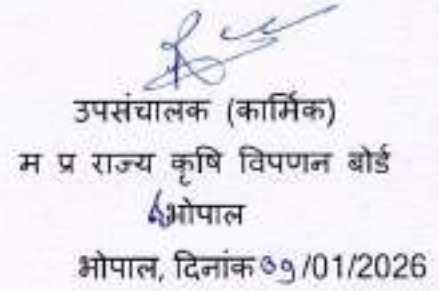 उपसंचालक (कार्मिक)
म प्र राज्य कृषि विपणन बोर्ड
भोपाल
भोपाल, दिनांक ०९/01/2026